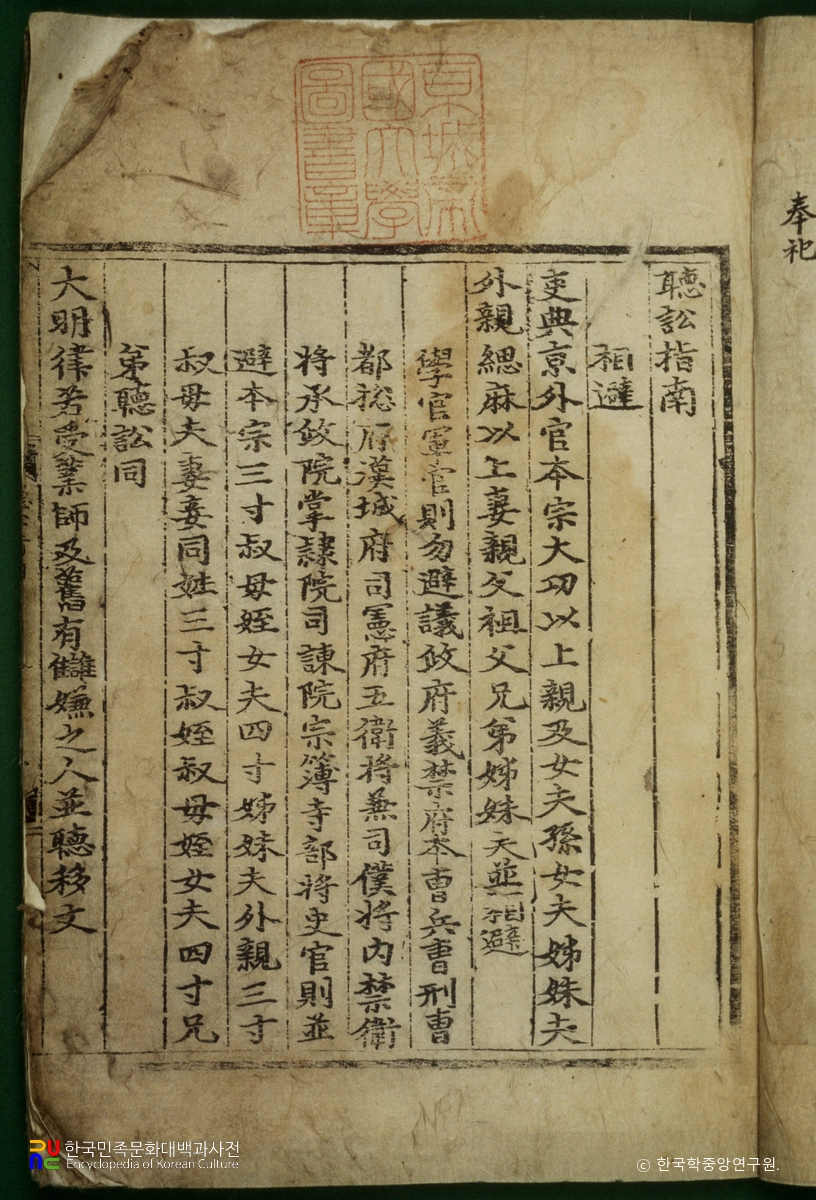 奉祀
京城帝
國大學
圖書章
聽訟指南
相避
吏典京外官本宗大功以上親及女夫孫女夫姊妹夫
外親緦麻以上妻親父祖父兄弟姊妹夫並相避
學官軍官則勿避議政府義禁府本曹兵曹刑曹
都捴府漢城府司憲府五衛將兼司僕將內禁衛
將承政院掌隷院司諫院宗簿寺部將史官則並
避本宗三寸叔母姪女夫四寸姊妹夫外親三寸
叔母夫妻妾同姓三寸叔姪叔母姪女夫四寸兄
弟聽訟同
大明律若受業師及舊有讎嫌之人並聽移文
한국민족문화대백과사전
Encyclopedia of Korean Culture
© 한국학중앙연구원.